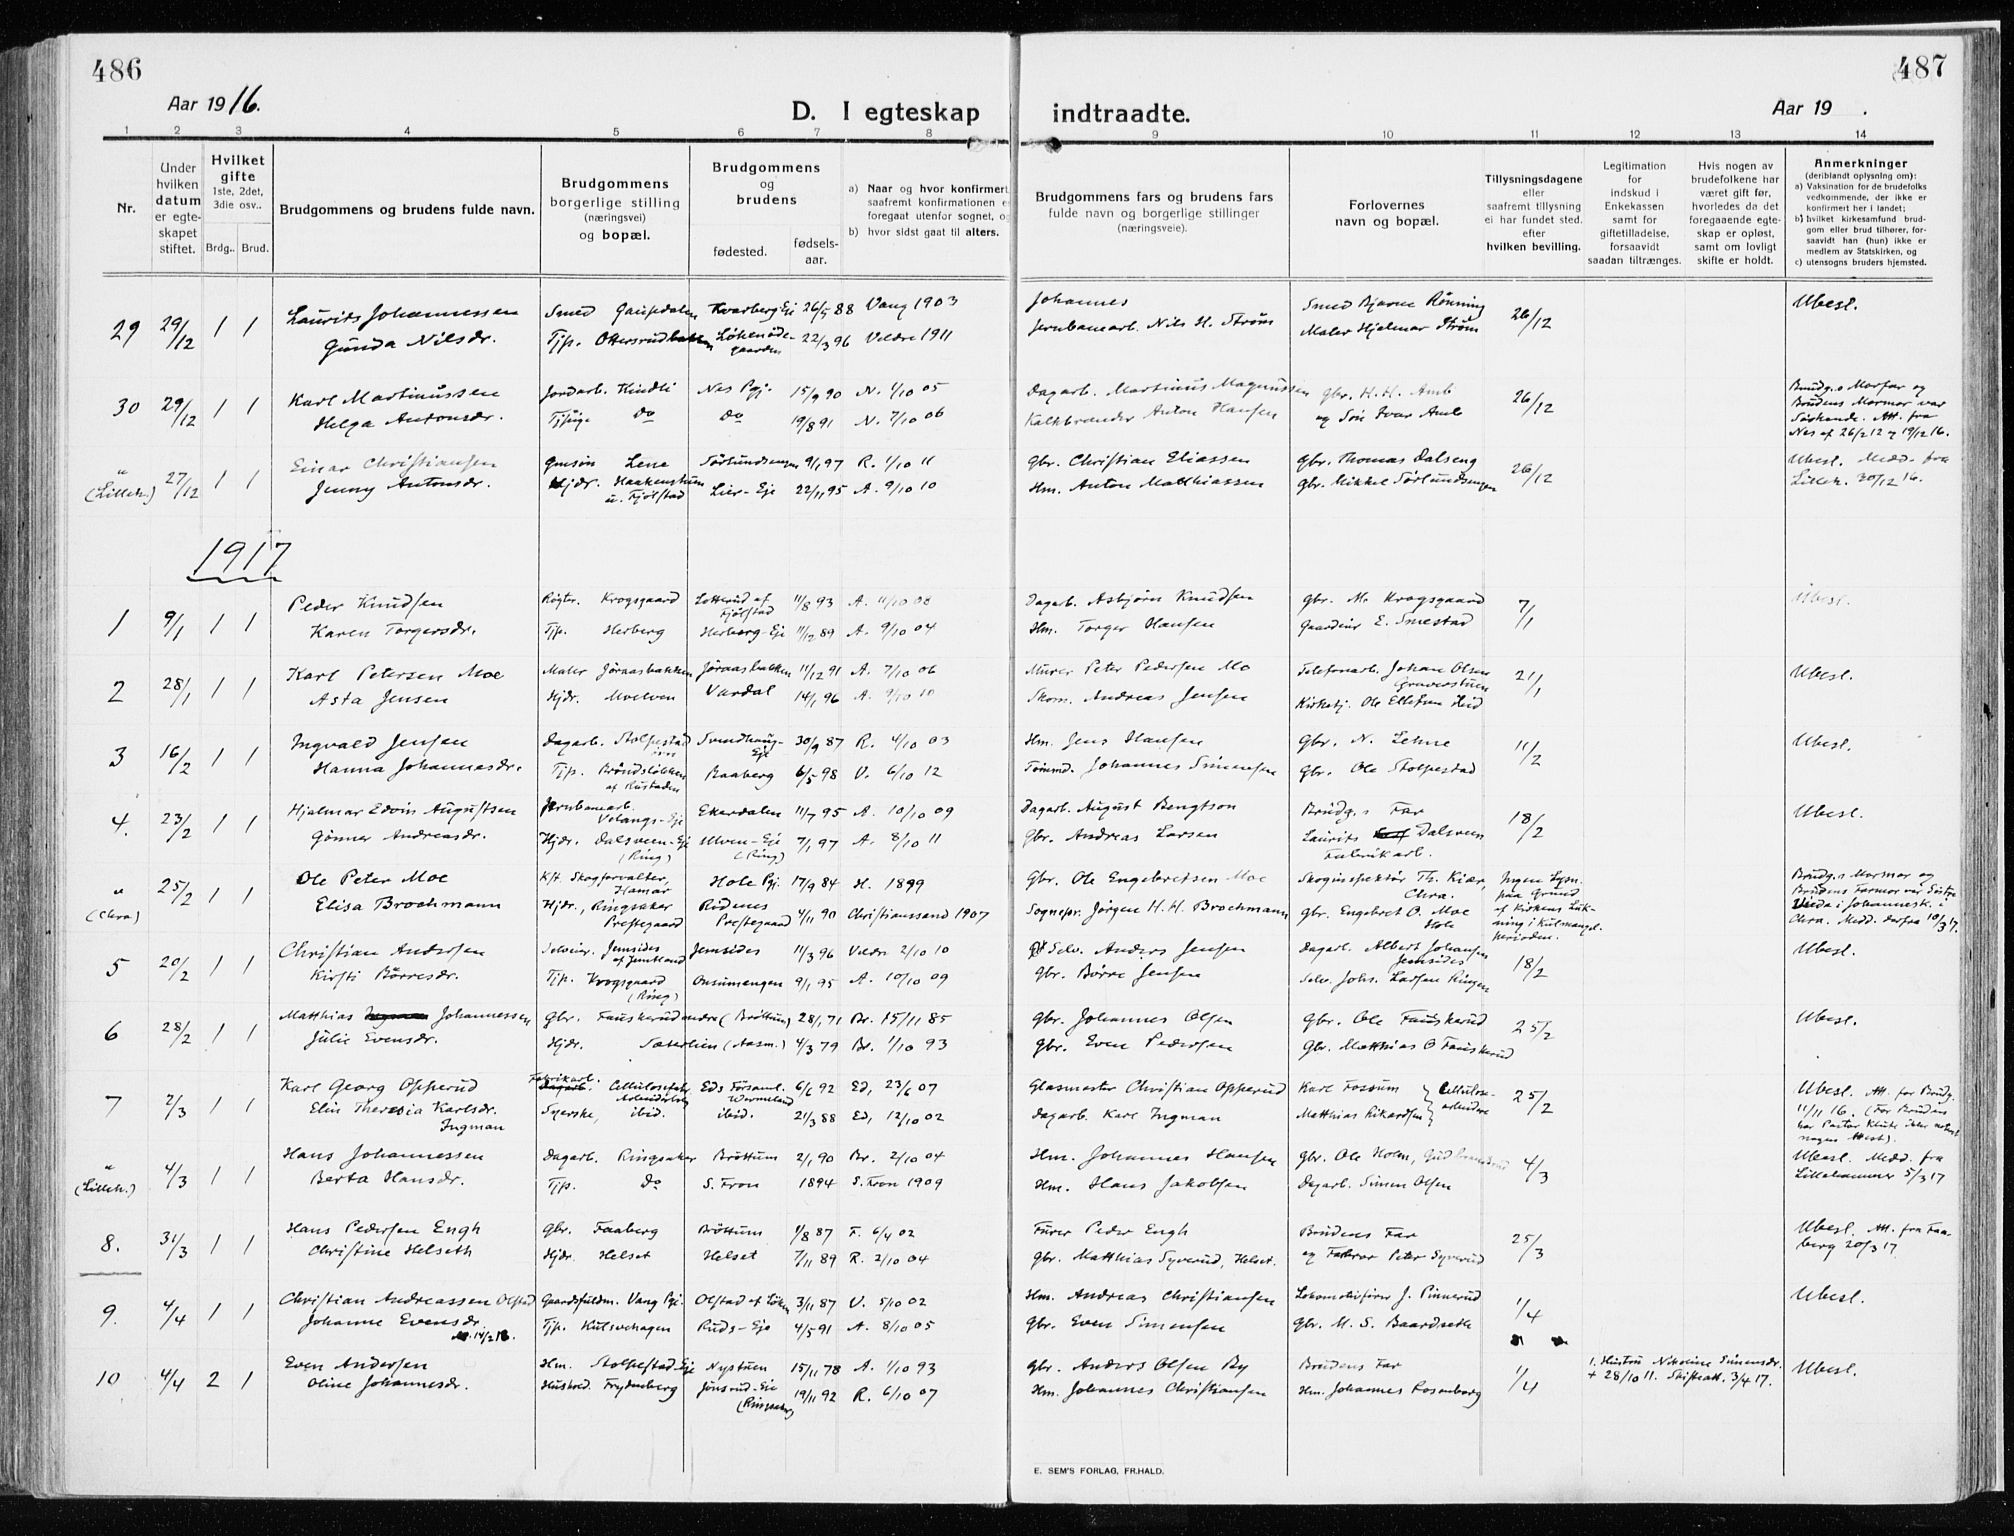 486
487
Aar 1916.
D. I egteskap indtraadte.
Aar 19 .
1 2 3 4 5 6 7 8 9 10 11 12 13 14
Nr.
Under hvilken datum er egte-skapet stiftet.
Hvilket gifte
1ste, 2det, 3die osv..
Brdg.. Brud.
Brudgommens og brudens fulde navn.
Brudgommens borgerlige stilling (næringsvei) og bopæl.
Brudgommens og brudens
fødested. fødsels-aar.
a) Naar og hvor konfirmert,
saafremt konfirmationen e
foregaat utenfor sognet, og
b) hvor sidst gaat til alters.
Brudgommens fars og brudens fars
fulde navn og borgerlige stillinger
(næringsveie).
Forlovernes
navn og bopæl.
Tillysningsdagene
eller
saafremt tillysning
ei har fundet sted.
efter
hvilken bevilling.
Legitimation
for
indskud i
Enkekassen
samt for
giftetilladelse,
forsaavidt
saadan tiltrænges.
Hvis nogen av
brudefolkene har
været gift før,
hvorledes da det
foregaaende egte-
skap er opløst,
samt om lovligt
skifte er holdt.
Anmerkninger
(deriblandt oplysning om):
a) Vaksination for de brudefolks
vedkommende, der ikke er
konfirmert her i landet;
b) hvilket kirkesamfund brud-
gom eller brud tilhører, for-
saavidt han (hun) ikke er
medlem av Statskirken, og
c) utensogns bruders hjemsted.
29 29/12 1 1 Laurits Johannessen Smed Gausdalen Kvarberg Eje 26/5 88 Vang 1903 Johannes Smed Bjarne Rønning 26/12 Ubesl.
Gunda Nilsdr. Tjp. Ottersrudbakken Løkenøde-gaarden 22/3 96 Veldre 1911 Jernbanearb. Nils H. Strøm Maler Hjalmar Strøm
30 29/12 1 1 Karl Martinussen Jordarb. Kindli Nes Pgj. 15/9 90 N. 1/10 05 Dagarb. Martinus Magnussen Gbr. H. H. Amb 26/12
Helga Antonsdr. Tjpige Do Do 19/8 91 N. 7/10 06 Kalkbrænder Anton Hansen og Søn Ivar Amb
Brudg.s Morfar og
Brudens Mormor var
Søskende. Att. fra
Nes af 26/2 12 og 19/12 16.
" (Lilleh.) 27/12 1 1 Einar Christiansen Gmsøn Lene Sørlundsengen 9/1 97 R. 1/10 11 Gbr. Christian Eliassen Gbr. Thomas Dalseng 26/12 Ubesl. Medd. fra
Jenny Antonsdr. Hjdr. Haakenstuen u. Fjølstad Lier-Eje 22/11 95 A. 9/10 10 Hm. Anton Matthiassen Gbr. Mikkel Sørlundsengen Lilleh. 30/12 16.
1917
1 9/1 1 1 Peder Knudsen Røgter. Krogsgaard Lotterud af Fjølstad 11/8 93 A. 11/10 08 Dagarb. Asbjørn Knudsen Gbr. M. Krogsgaard 7/1 Ubesl.
Karen Torgersdr. Tjp. Herberg Herberg-Eje 11/12 89 A. 9/10 04 Hm. Torger Hansen Gaardeier E. Smestad
2 28/1 1 1 Karl Petersen Moe Maler Jøraasbakken Jøraasbakken 11/12 91 A. 7/10 06 Murer Peter Pedersen Mo Telefonarb. Johan Olsen Graverstuen 21/1 Ubesl.
Asta Jensen Hjdr. Moelven Vardal 14/1 96 A. 9/10 10 Skom. Andreas Jensen Kirketj. Ole Ellefsen Lied
3 16/2 1 1 Ingvald Jensen Dagarb. Stolpestad Svendhaug-Eje 30/9 87 R. 4/10 03 Hm. Jens Hansen Gbr. N. Lehne 11/2 Ubesl.
Hanna Johannesdr. Tjp. Brøndsløkken af Rustaden Baaberg 6/5 98 V. 6/10 12 Tømmd. Johannes Simensen Gbr. Ole Stolpestad
4. 23/2 1 1 Hjalmar Edvin Augustsen Jernbanearb. Velangs-Eje Ekerdalen 11/7 95 A. 10/10 09 Dagarb. August Bengtson Brudg.s Far 18/2 Ubesl.
Gunner Andreasdr. Hjdr. Dalsveen-Eje (Ring) Ulven-Eje (Ring) 7/1 97 A. 8/10 11 Gbr. Andreas Larsen Laurits Dalsveen Fabrikarb.
" (Chra) 25/2 1 1 Ole Peter Moe Kst. Skogforvalter, Hamar Hole Pgj. 17/9 84 H. 1899 Gbr. Ole Engebretsen Moe Skoginspektør Th. Kiær, Chra.
Elisa Brochmann Hjdr., Ringsaker Prestegaard Rødenes Prestegaard 4/11 90 Christianssand 1907 Sognepr. Jörgen H. H. Brochmann Gbr. Engebret O. Moe Hole
Ingen Lysn.
paa Grund
af Kirkens Luk-
ning i Kulmangel-
perioden.
Brudg.s Mormor og
Brudens Farmor var Søstre
Viede i Johannesk. i
Chra. Medd. derfra 10/3 17.
5 20/2 1 1 Christian Andersen Selveier. Jemsides af Jemtland Jemsides 11/3 96 Veldre 2/10 10 Selv. Anders Jensen Dagarb. Albert Johansen Jemsides 18/2 Ubesl.
Kirsti Børresdr. Tjp. Krogsgaard (Ring) Onsumengen 9/1 95 A. 10/10 09 Gbr. Børre Jensen Selv. Johs. Larsen Ringen
6 28/2 1 1 Matthias Johannessen Gbr. Fauskerud nedre (Brøttum) 28/1 71 Br. 15/11 85 Gbr. Johannes Olsen Gbr. Ole Fauskerud 25/2 Ubesl.
Julie Evensdr. Hjdr. Sæterlien (Aasm.) 4/3 79 Br. 1/10 93 Gbr. Even Pedersen Gbr. Matthias O Fauskerud
7 2/3 1 1 Karl Georg Opperud Fabrikarb. Cellulosefabr. Eds Forsaml. Wermeland 6/6 92 Ed, 23/6 07 Glasmester Christian Opperud Karl Fossum Cellulose- 25/2
Elin Theresia Karlsdr. Ingman Syerske, ibid. ibid. 21/3 88 Ed, 12/10 02 Dagarb. Karl Ingman Matthias Rikardsen arbeidere
Ubesl. Att. for Brudg.
11/11 16. (For Bruden
har Pastor Klute ikke
nogen Attest).
" (Lilleh.) 4/3 1 1 Hans Johannessen Dagarb. Ringsaker Brøttum 2/1 90 Br. 2/10 04 Hm. Johannes Hansen Gbr. Ole Holm, 4/3 Ubesl. Medd. fra
Berta Hansdr. Tjp. Do S. Fron 1894 S. Fron 1909 Hm. Hans Jakobsen Dagarb. Simen Olsen Lillehammer 5/3 17
8. 31/3 1 1 Hans Pedersen Engh Gbr. Faaberg Brøttum 1/8 87 F. 6/4 02 Furer Peder Engh Brudens Far 25/3 Ubesl. Att. fra Faa-
Christine Helseth Hjdr. Helset Helset 7/11 89 R. 2/10 04 Gbr. Matthias Syverud, Helset. og Farbror Peter Syverud berg 20/3 17.
9. 4/4 1 1 Christian Andreassen Olstad Gaardsfuldm. Vang Pgj. Olstad af Løken 3/11 87 V. 5/10 02 Hm. Andreas Christiansen Lokomotivfører J. Pinnerud 1/4 Ubesl.
Johanne Evensdr. 14/2 18. Tjp. Kulsvehagen Ruds-Eje 4/5 91 A. 8/10 05 Gbr. Even Simensen Gbr. M. S. Baardseth
10 4/4 2 1 Even Andersen Hm. Stolpestad-Eje Nystuen 15/11 78 A. 1/10 93 Gbr. Anders Olsen By Brudens Far 1/4 1. Hustru Nikoline Simensdr. Ubesl.
Oline Johannesdr. Hushold. Frydenberg Jønsrud-Eje (Ringsaker) 19/11 92 R. 6/10 07 Hm. Johannes Christiansen Hm. Johannes Rosenborg + 28/10 11. Skifteatt. 3/4 17.
E. SEM'S FORLAG, FR.HALD.